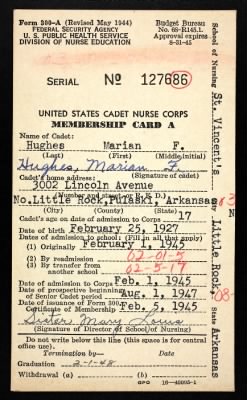 Form 300-A (Revised May 1944)
FEDERAL SECURITY AGENCY
U. S. PUBLIC HEALTH SERVICE
DIVISION OF NURSE EDUCATION
Budget Bureau
No. 68-R145.1.
Approval expires
8-31-45
SERIAL No 127686
UNITED STATES CADET NURSE CORPS
MEMBERSHIP CARD A
Name of Cadet:
Hughes Marian F.
(Last) (First) (Middle initial)
Hughes, Marian F.
Cadet's home address: (Signature of cadet)
3002 Lincoln Avenue
No. Little Rock, Pulaski, Arkansas 03
(City) (County) (State)
Cadet's age on date of admission to Corps 17
Date of birth February 25, 1927
Date of admission to school: (Fill in all that apply)
(1) Originally February 1, 1945
(2) By readmission 62-01-5
(3) By transfer from another school 62-5-17
Date of admission to Corps Feb. 1, 1945
Date of prospective beginning of Senior Cadet period Aug. 1, 1947
Date of issuance Form 300, Certificate of Membership Feb. 5, 1945
Sister Mary Louis
(Signature of Director of School of Nursing)
Do not write below this line (this space is for central office use).
Termination by— Date
Graduation 2-1-48
Withdrawal (a) (b)
GPO 16-40095-1
School of Nursing St. Vincent's
Little Rock
08-
State Arkansas
N